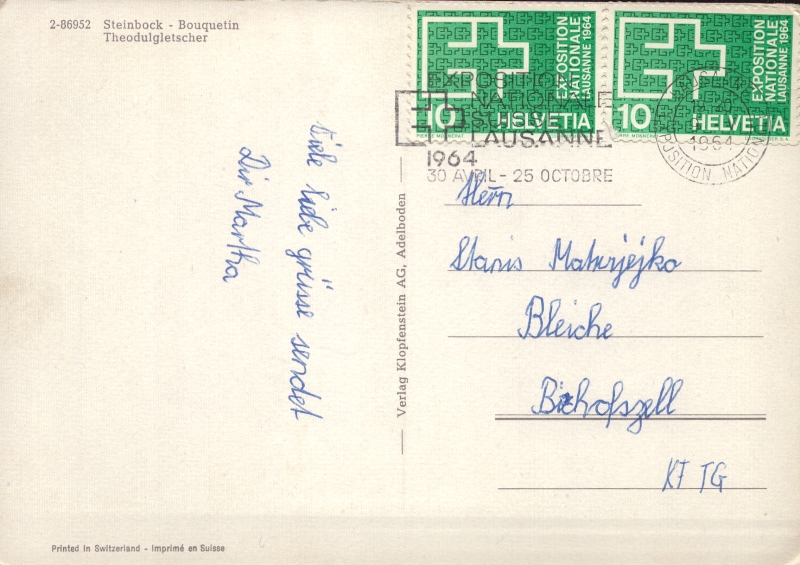 2-86952 Steinbock - Bouquetin
Theodulgletscher
Viele liebe grüsse sendet
Dir Martha
Verlag Klopfenstein AG, Adelboden
EXPOSITION
NATIONALE
LAUSANNE 1964
10 HELVETIA
EXPOSITION
NATIONALE
LAUSANNE 1964
10 HELVETIA
EXPOSITION
NATIONALE
SUISSE
LAUSANNE
1964
30 AVRIL - 25 OCTOBRE
1964
EXPOSITION NATIONALE
Herrn
Stanis Maturjejko
Bleiche
Bischofszell
KT TG
Printed in Switzerland - Imprimé en Suisse